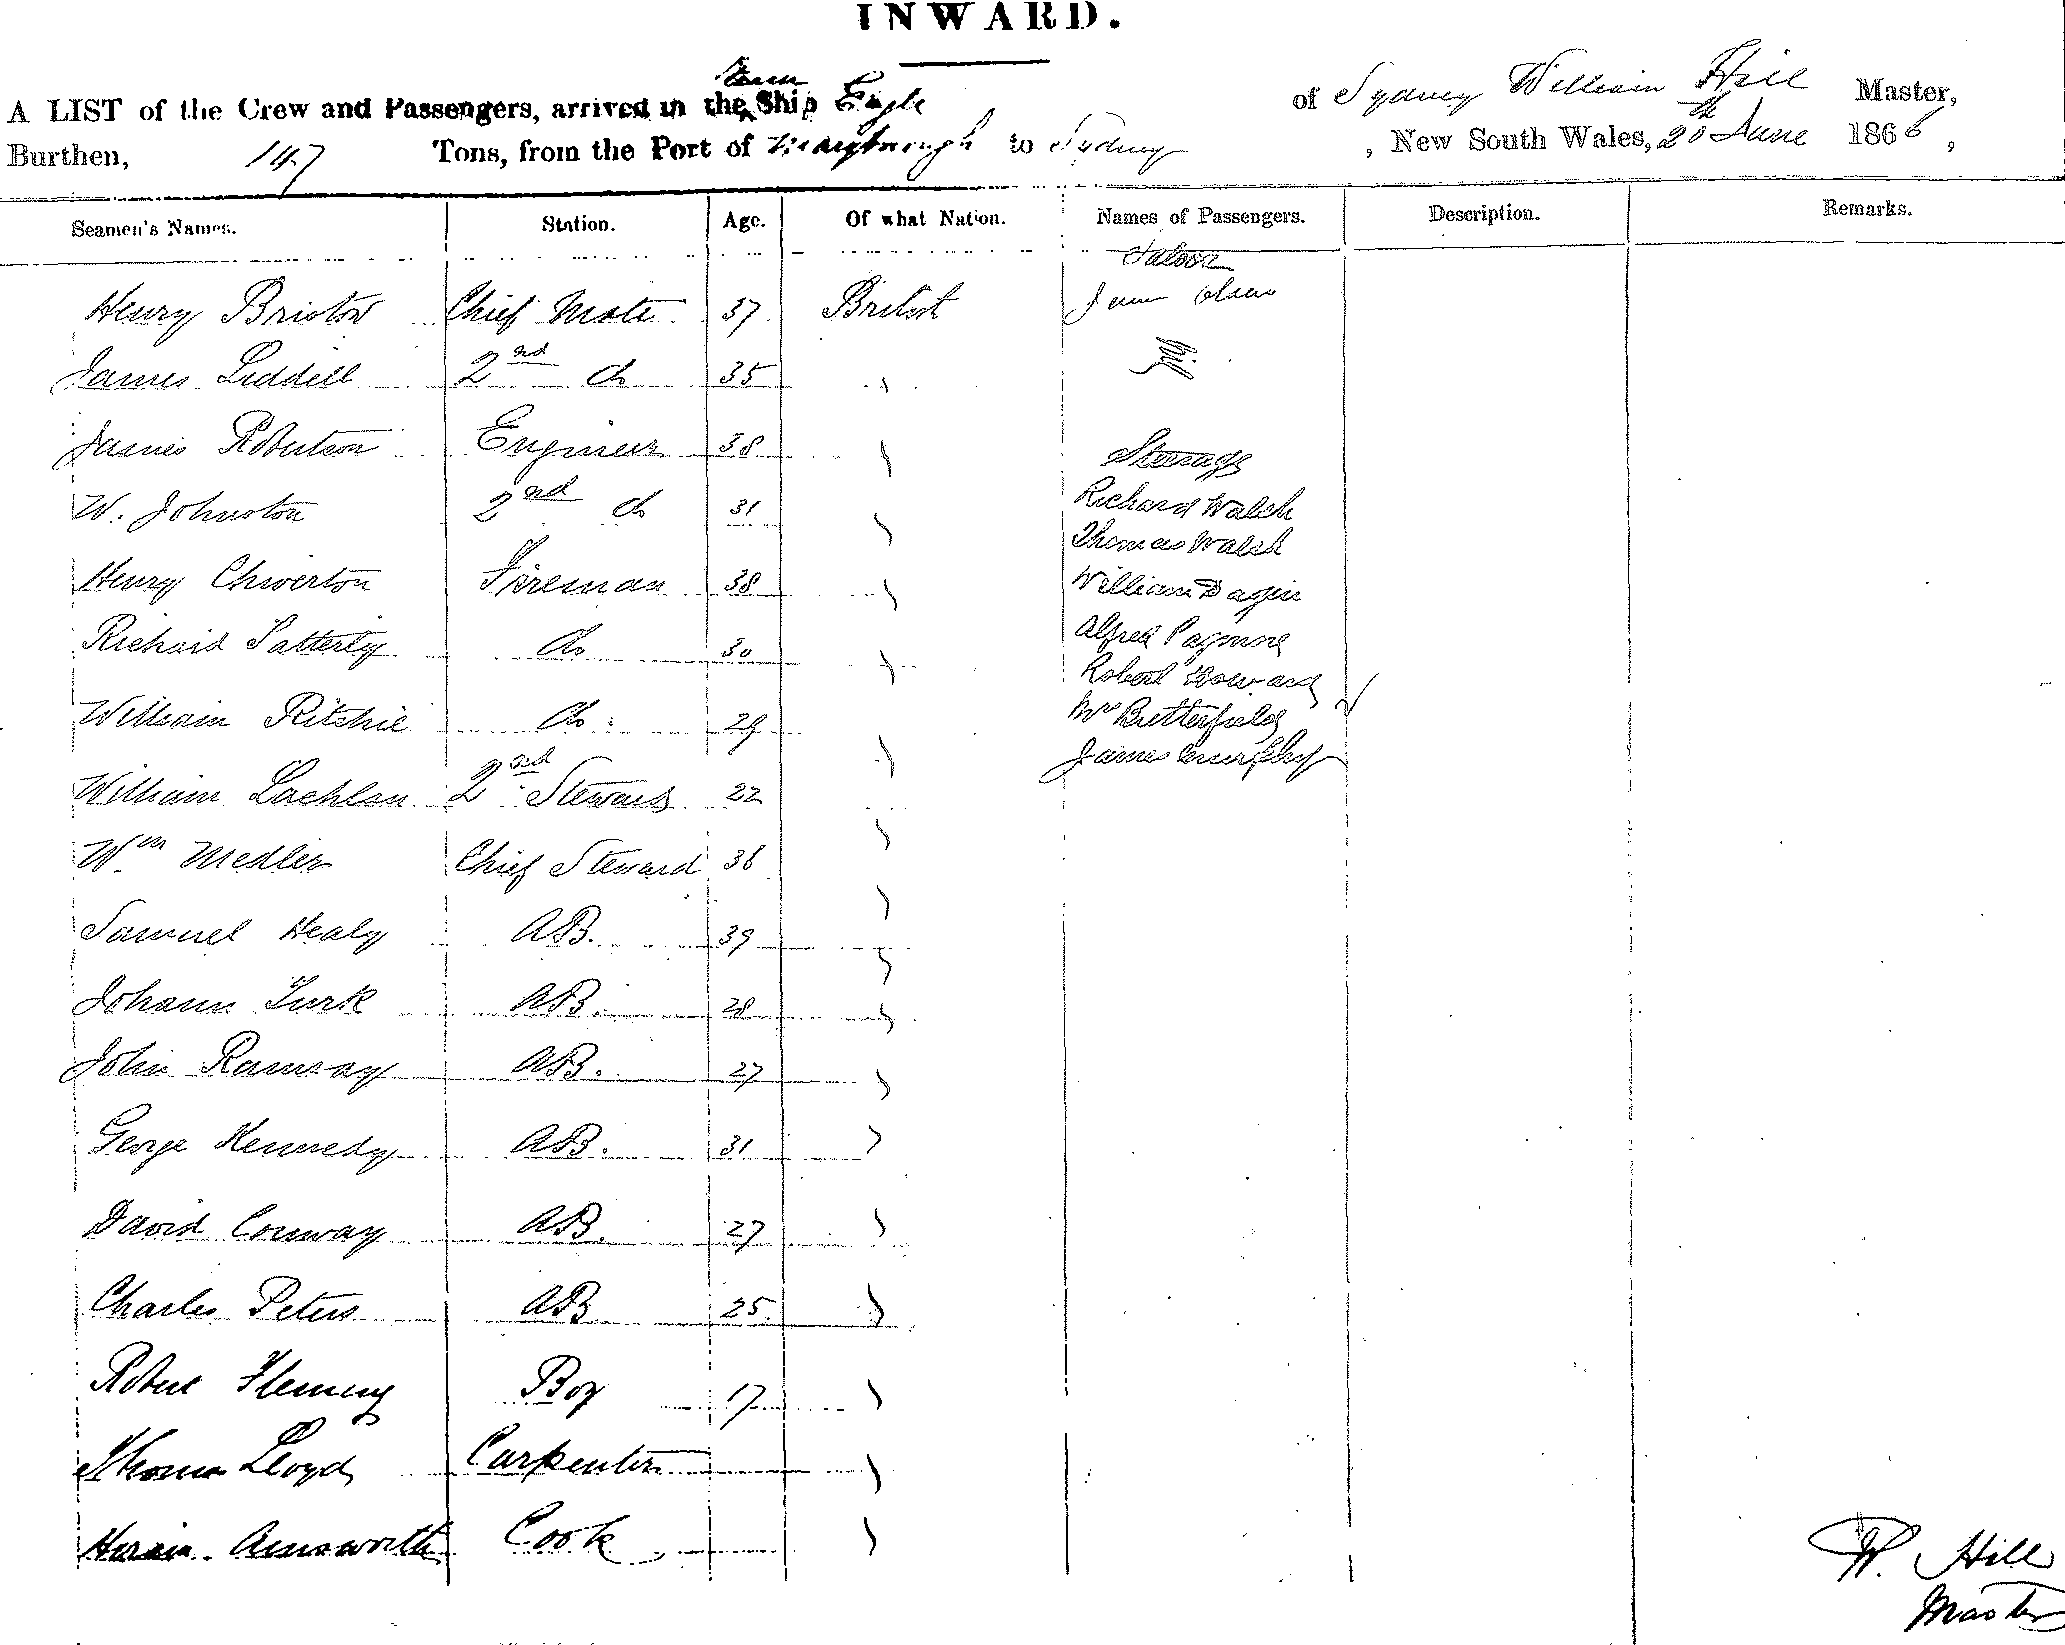 INWARD.
A LIST of the Crew and Passengers, arrived in the Steam Ship Eagle of Sydney William Hill Master,
Burthen, 147 Tons, from the Port of Maryborough to Sydney , New South Wales, 20th June 1866,
Seamen's Names. Station. Age. Of what Nation. Names of Passengers. Description. Remarks.
Saloon
Henry Bristow Chief Mate 37 British
James Liddell 2nd do 35 "
James Robertson Engineer 38 "
Steerage
W. Johnston 2nd do 31 " Richard Walsh
Thomas Walsh
Henry Chiverton Fireman 38 " William
Richard Satterly do 30 " Alfred
Robert Howard
William Ritchie do 29 " Mrs Butterfield
James Murphy
William Lachlan 2nd Steward 22 "
Wm Medler Chief Steward 36 "
Samuel Healy AB. 39 "
Johann Turk AB. 28 "
John Ramsay AB. 27 "
George Kennedy AB. 31 "
David Conway AB. 27 "
Charles Peters AB 25 "
Robert Fleming Boy 17 "
Thomas Lloyd Carpenter "
Ainsworth Cook "
W. Hill
Master